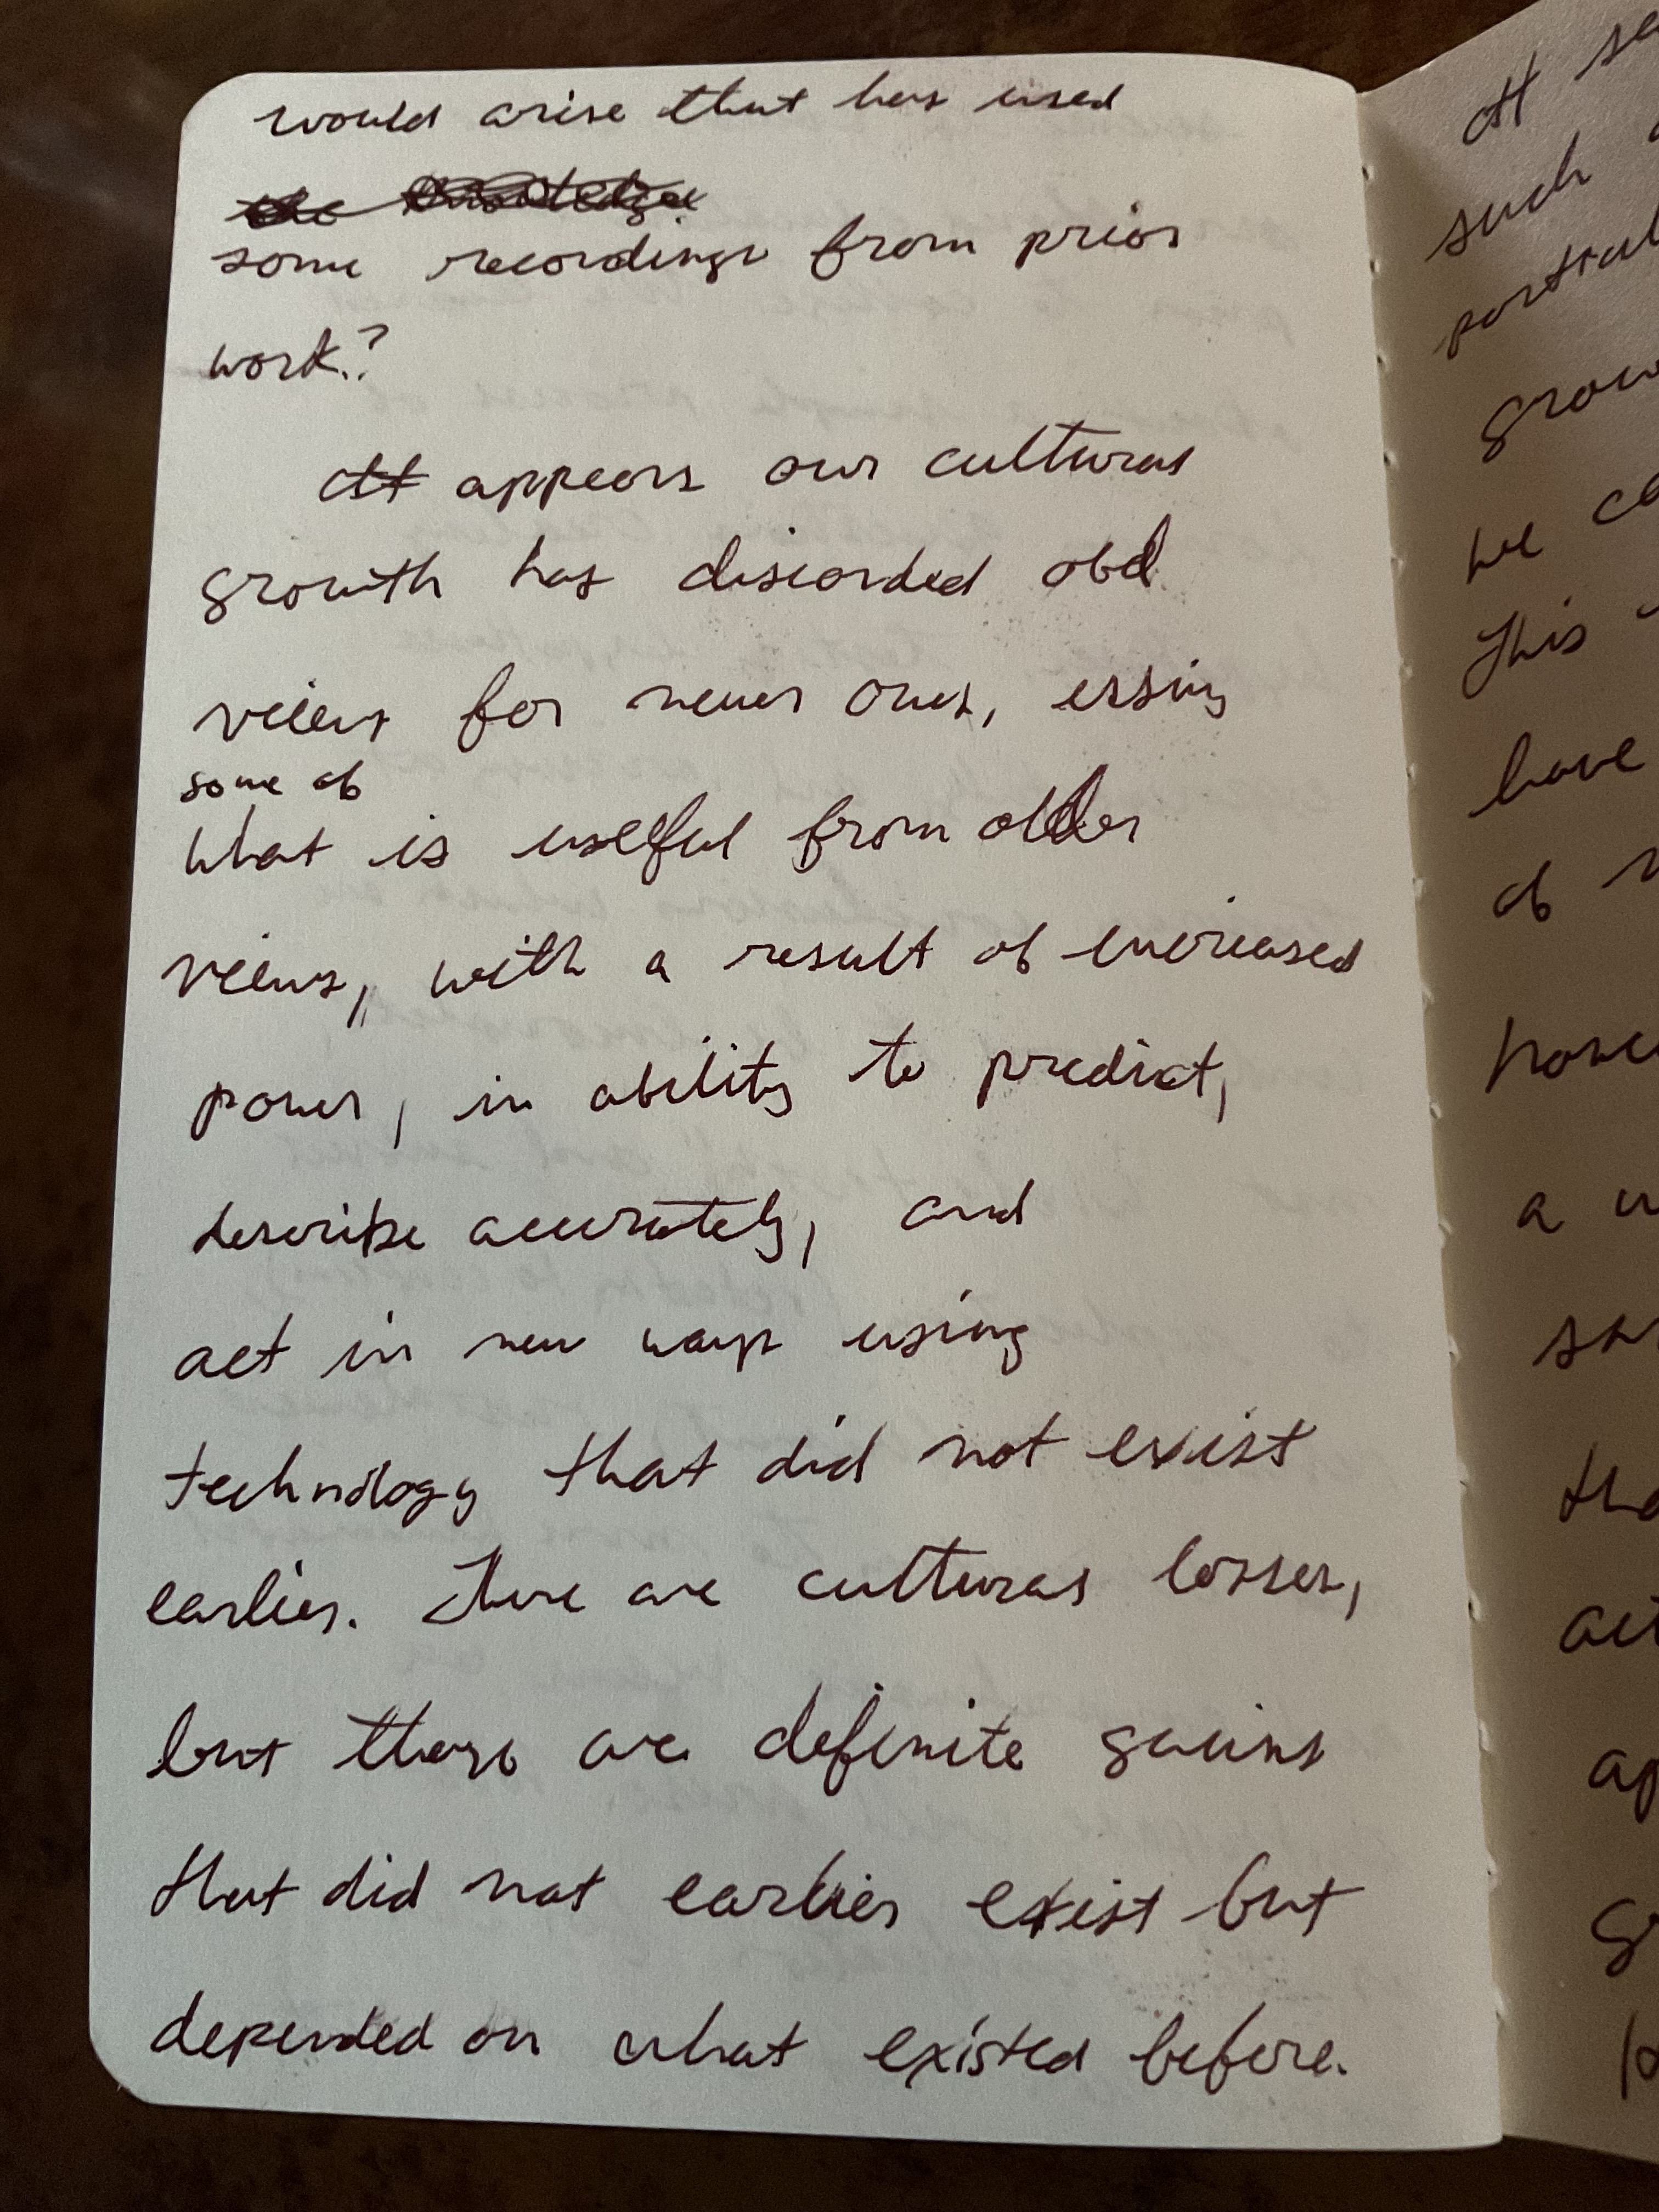 would arise that has used
some recordings from prior
work?
It appears our cultural
growth has discarded old
views for newer ones, using
some of
what is useful from older
views, with a result of increased
power, in ability to predict,
describe accurately, and
act in new ways using
technology that did not exist
earlier. There are cultural losses,
but there are definite gains
that did not earlier exist but
depended on what existed before.
It
such
partial
we
This
have
of
a